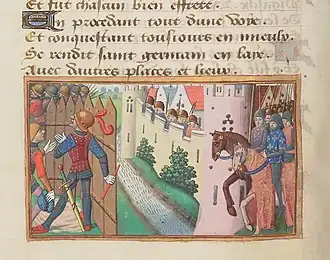 Et fut chascun bien effrete.
En procedant tout dune voye
Et conquestant tousiours en mieulx
Se rendit saint germain en laye
Avec dautres places et lieux.